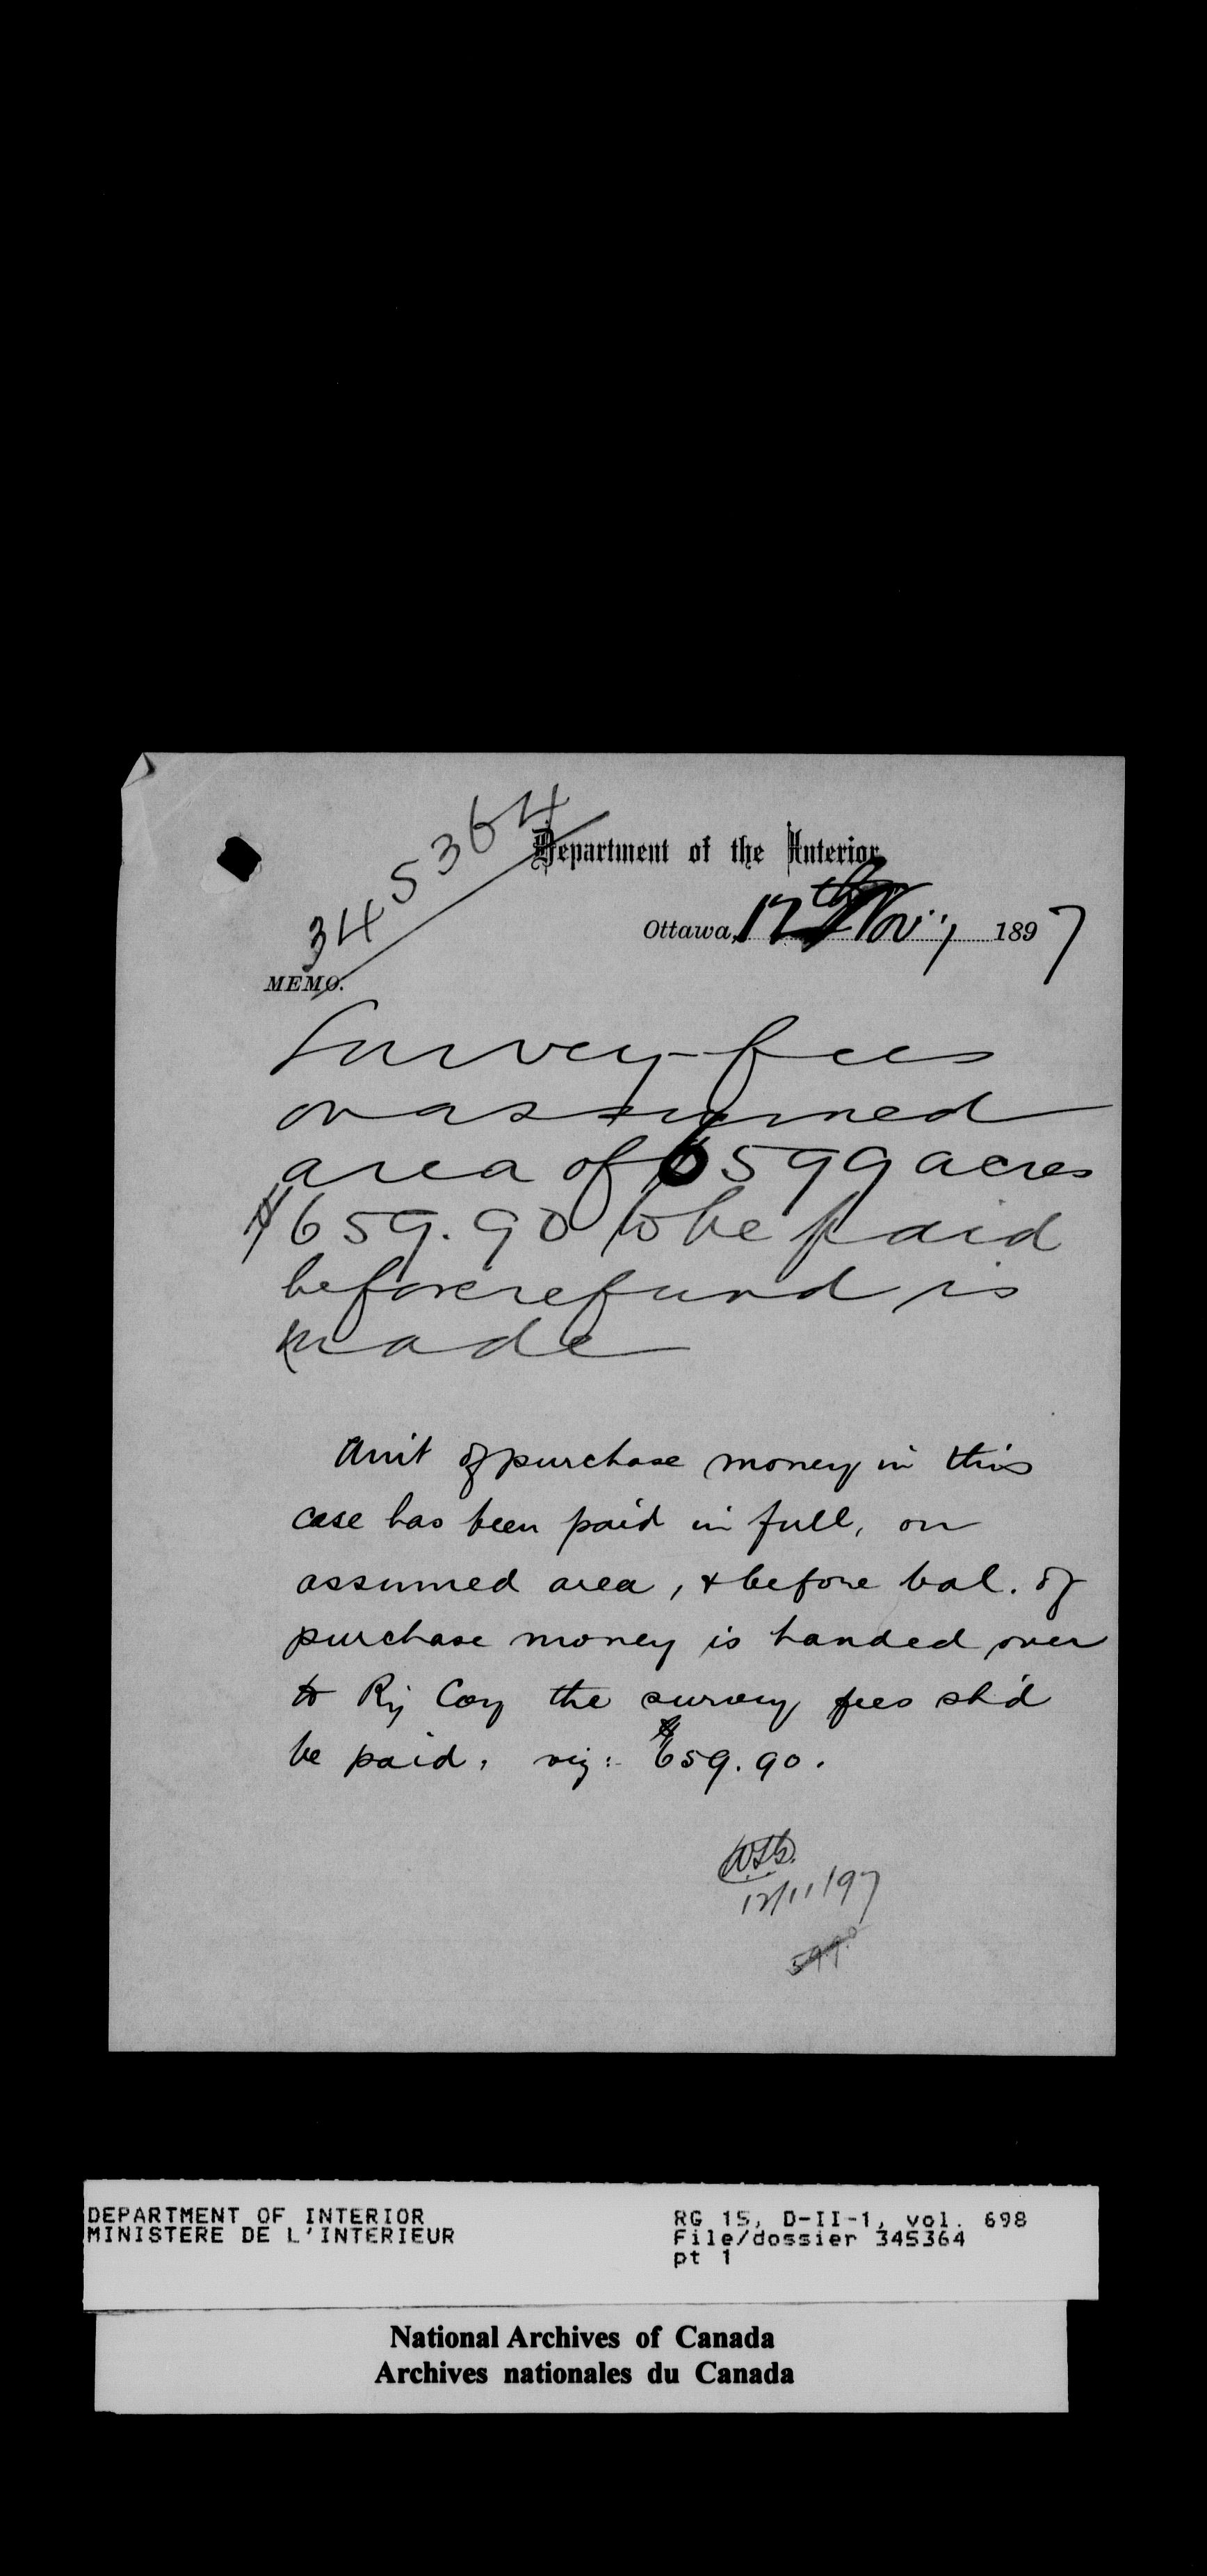 345364
Department of the Interior,
Ottawa, 12th Nov., 1897
MEMO.
Survey fees
on assumed
area of 6599 acres
$659.90 to be paid
before refund is
made
Am't of purchase money in this
case has been paid in full, on
assumed area, & before bal. of
purchase money is handed over
to Ry Coy the survey fees sh'd
be paid, viz: $659.90.
12/11/97
DEPARTMENT OF INTERIOR
MINISTERE DE L'INTERIEUR
RG 15, D-II-1, vol. 698
File/dossier 345364
pt 1
National Archives of Canada
Archives nationales du Canada